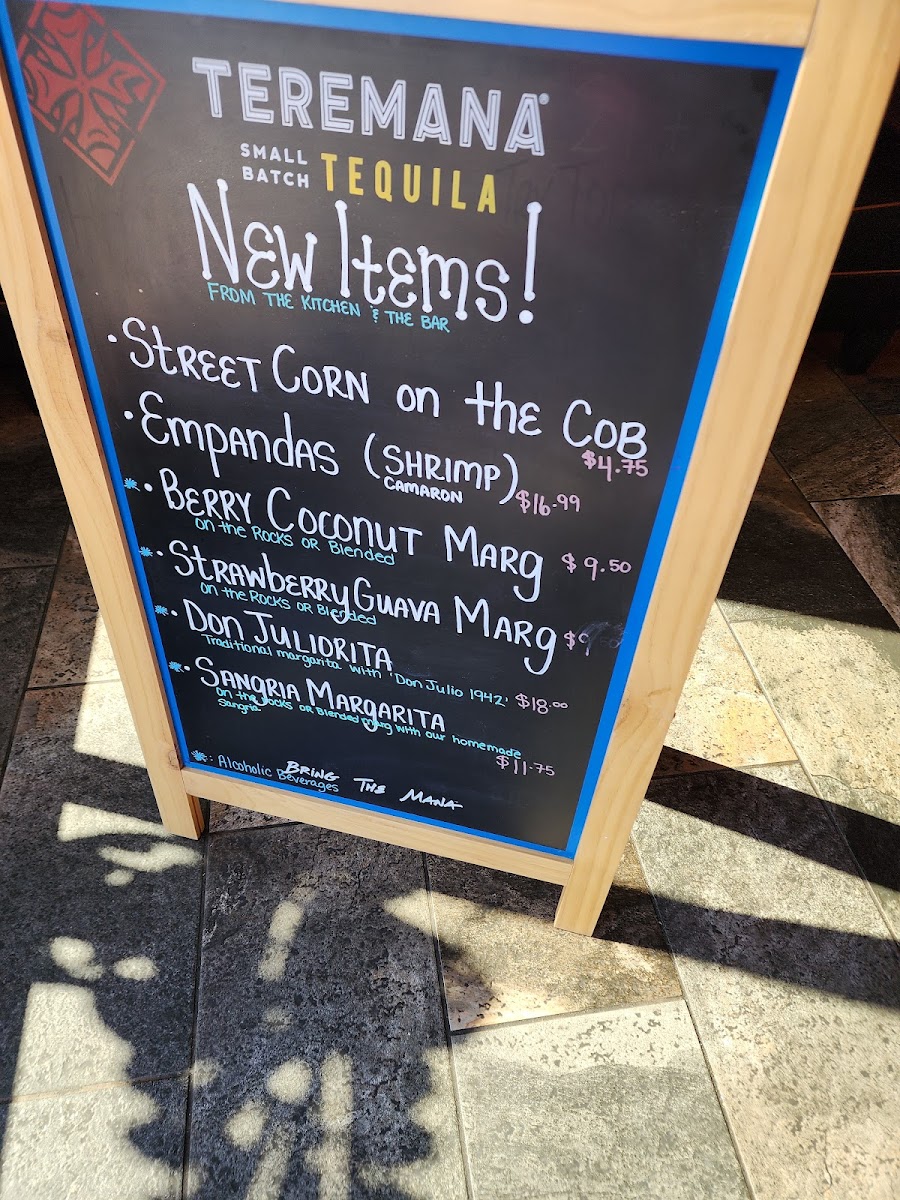 TEREMANA®
SMALL BATCH TEQUILA
New Items!
FROM THE KITCHEN & THE BAR
• STREET CORN on the COB
$4.75
• EMPANDAS (SHRIMP)
CAMARON
$16.99
* • BERRY COCONUT MARG $9.50
on the ROCKS OR Blended
* • STRAWBERRY GUAVA MARG $9
on the ROCKS OR Blended
* • DON JULIORITA
Traditional margarita with 'Don Julio 1942' $18.00
* • SANGRIA MARGARITA
on the rocks OR Blended marg with our homemade
sangria
$11.75
* : Alcoholic Beverages
BRING THE MANA